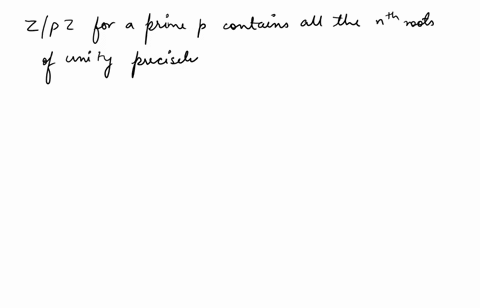 Z/pZ for a prime p contains all the nth roots
of unity precisely